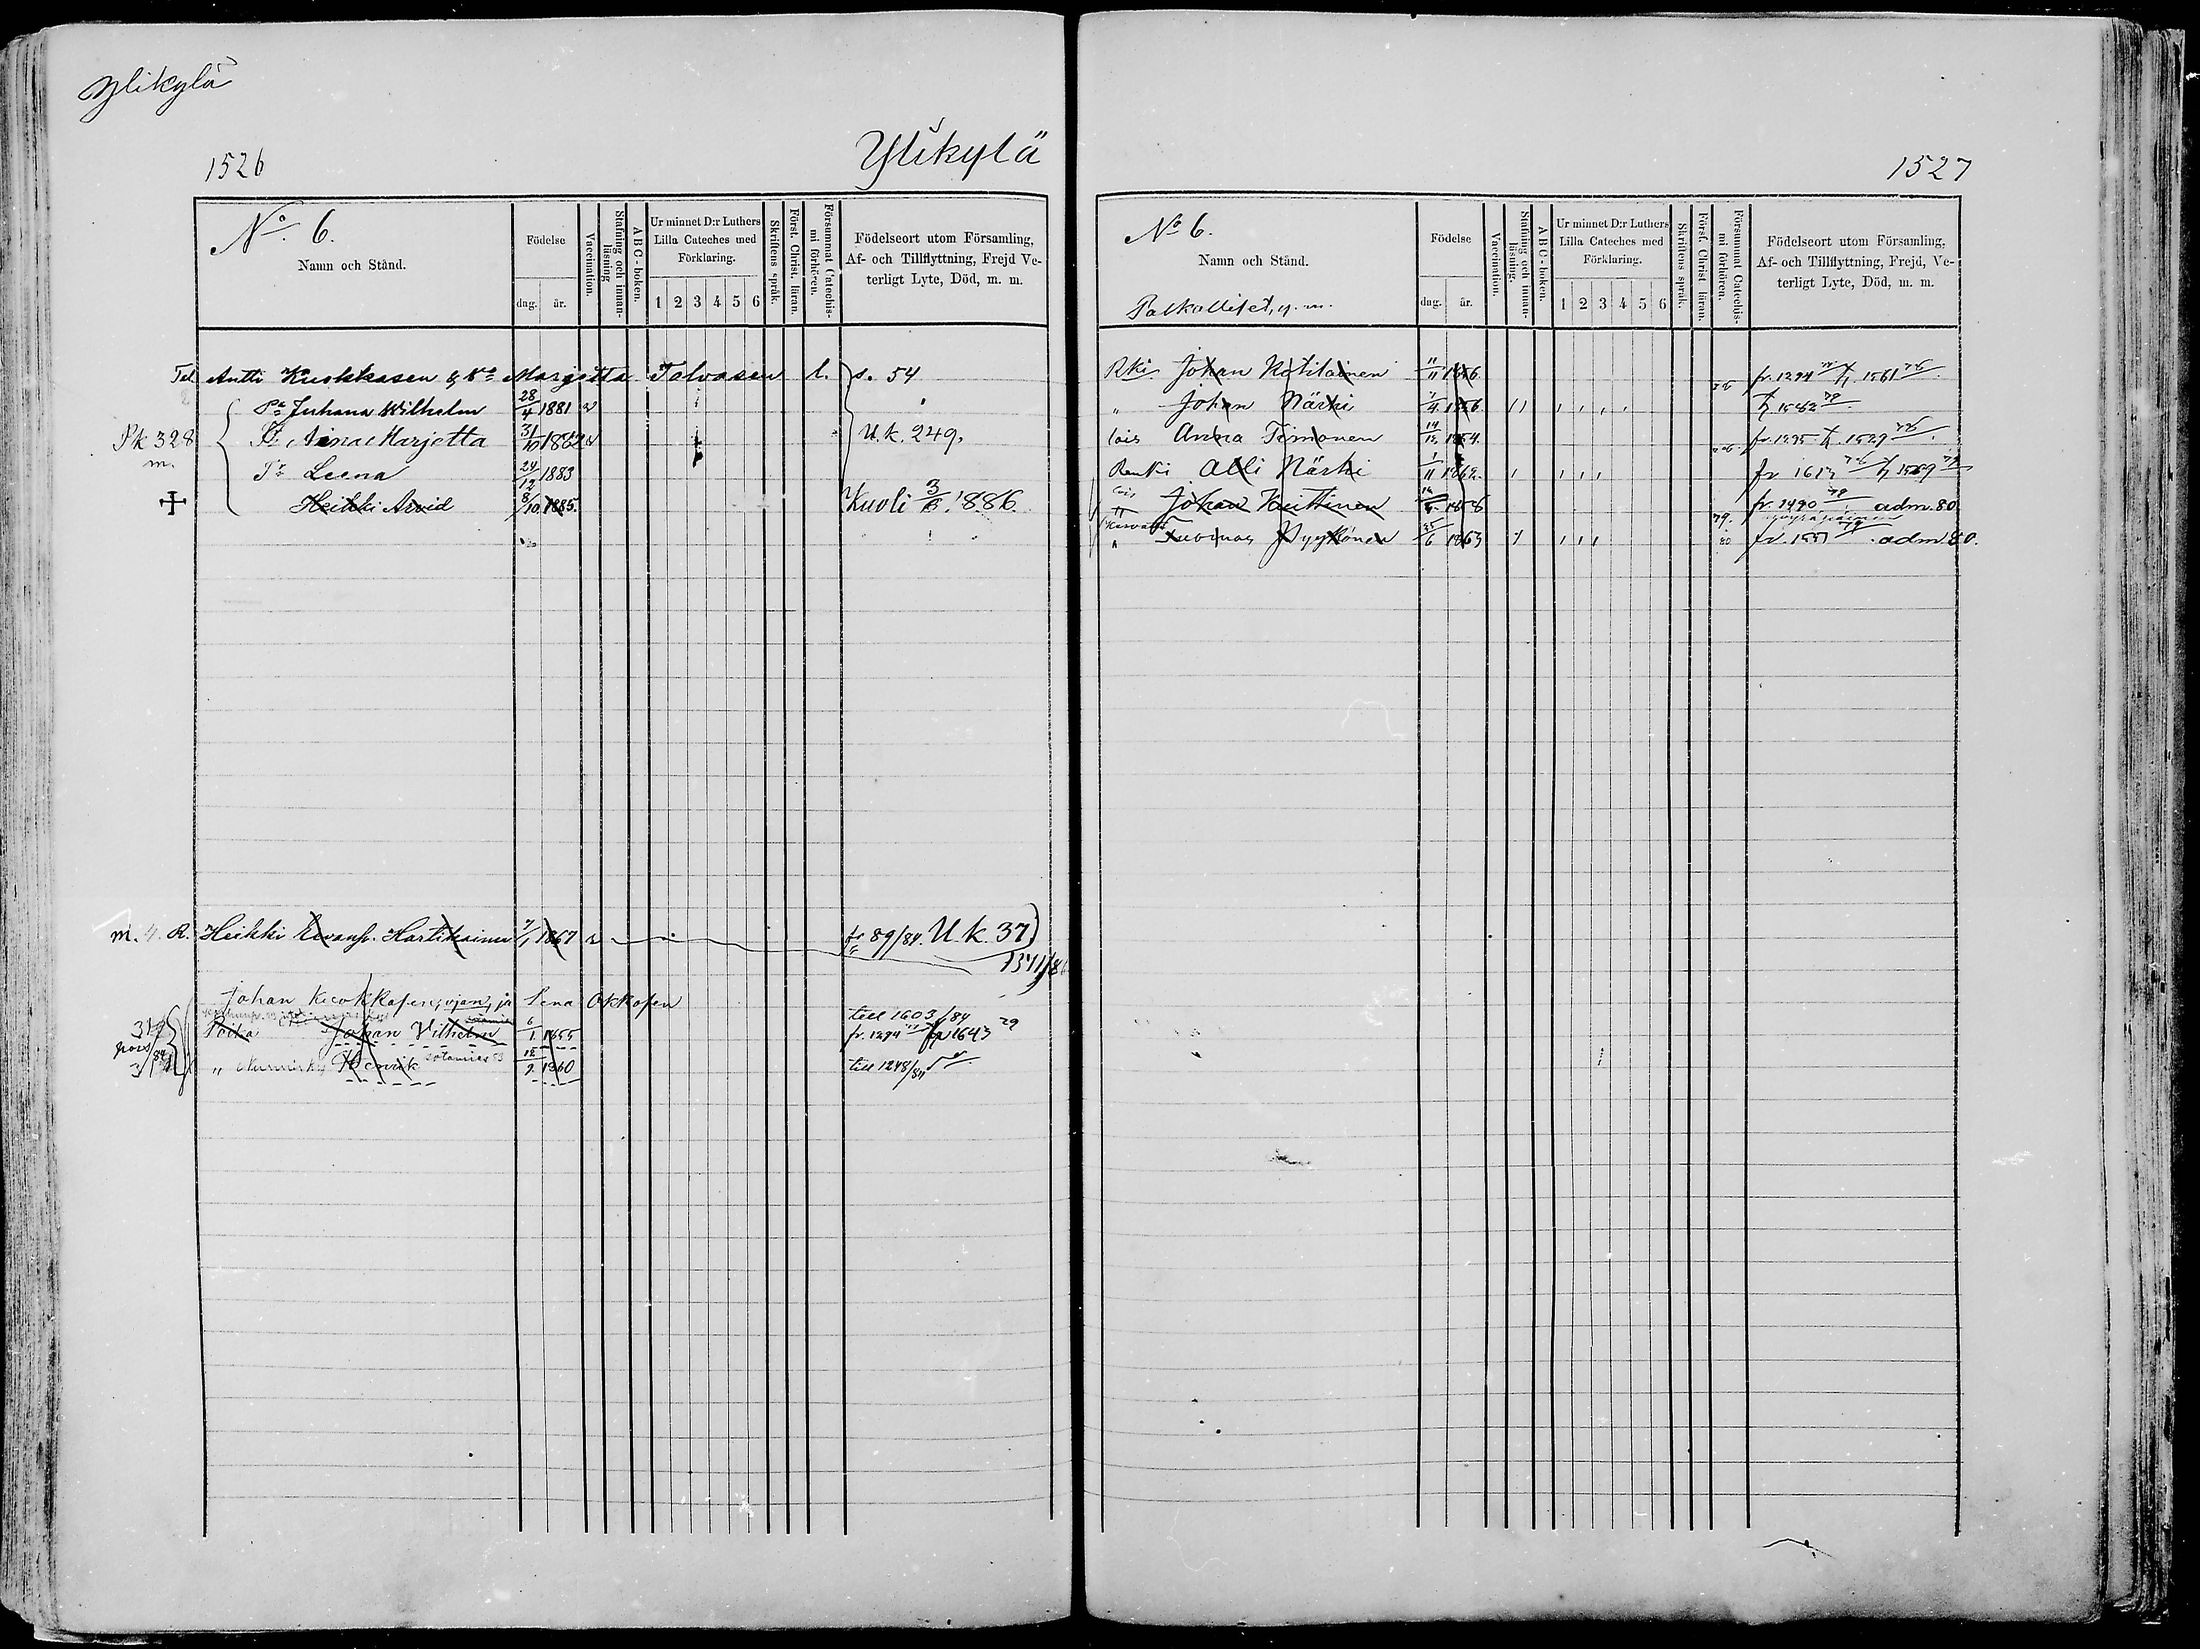 Ylikylä
1526
Ylikylä
No. 6.
Namn och Stånd.
Födelse
dag. år.
Vaccination.
Stafning och innan-läsning
ABC-boken.
Ur minnet D:r Luthers Lilla Cateches med Förklaring.
1 2 3 4 5 6
Skriftens språk.
Först. Christ. läran.
Försummat Catechis-mi förhören.
Födelseort utom Församling, Af- och Tillflyttning, Frejd Ve-terligt Lyte, Död, m. m.
Antti Kuokkasen & Margetta Talvasen l. s. 54
Pa Juhana Wilhelm 28/4 1881 v
Pk 328 m. Anna Marjetta 31/10 1882 v U.k. 249.
Leena 24/12 1883
Heikki Arvid 8/10 1885. Kuoli 3/6 1886
m. 4. R. Heikki Hartikainen 7/1 1867 v fr 89/84. U.k. 37)
1341/86
Johan Kuokkasen, ja Lena Okkosen
Poika Johan Vilhelm 6/1 1855 till 1603/84
fr. 1294 1643 79
" Henrik 12/9 1860 till 1248/84
1527
No 6.
Namn och Stånd.
Palkolliset, y. m.
Födelse
dag. år.
Vaccination.
Stafning och innan-läsning.
ABC-boken.
Ur minnet D:r Luthers Lilla Cateches med Förklaring.
1 2 3 4 5 6
Skriftens språk.
Först. Christ. läran.
Försummat Catechis-mi förhören.
Födelseort utom Församling, Af- och Tillflyttning, Frejd, Ve-terligt Lyte, Död, m. m.
Rki Johan Kotilainen 11/11 1856 fr. 1294 1561
" Johan Närhi 1/4 1856 1562 78
lois Anna Timonen 1854 fr. 1295 1529
Renki Alli Närhi 1/11 1862 fr 1617 1569 79
Johan Kuittinen 1858 fr. 1490 78 adm. 80
" Tuomas Pyykönen 25/6 1863 79. 80 fr. 1551 adm 80.